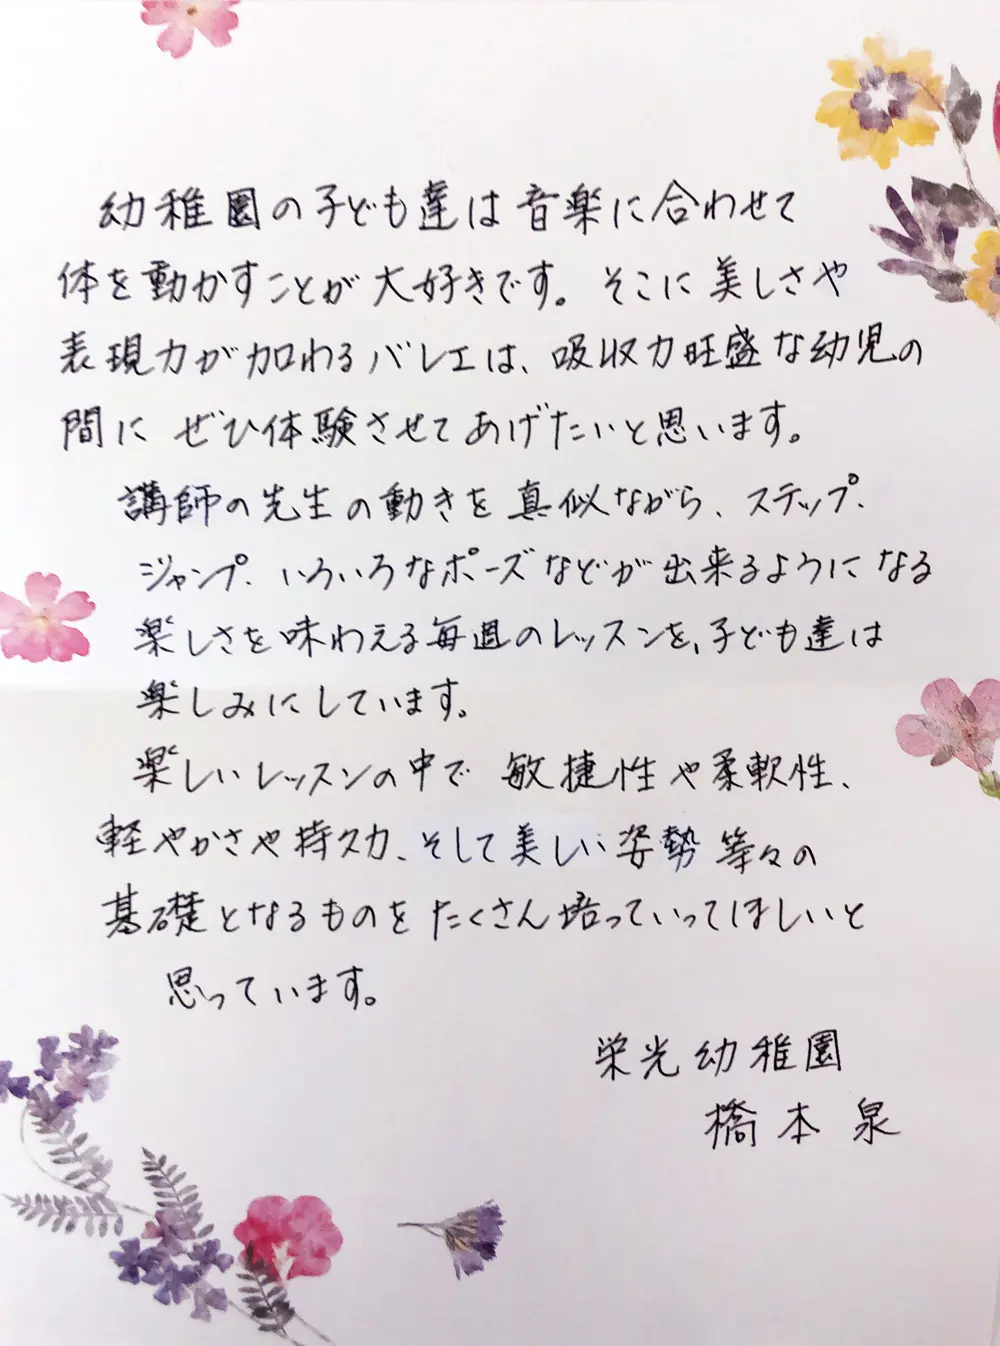 幼稚園の子ども達は音楽に合わせて
体を動かすことが大好きです。そこに美しさや
表現力が加わるバレエは、吸収力旺盛な幼児の
間に ぜひ体験させてあげたいと思います。
講師の先生の動きを真似ながら、ステップ、
ジャンプ、いろいろなポーズなどが出来るようになる
楽しさを味わえる毎週のレッスンを、子ども達は
楽しみにしています。
楽しいレッスンの中で 敏捷性や柔軟性、
軽やかさや持久力、そして美しい姿勢 等々の
基礎となるものをたくさん培っていってほしいと
思っています。
栄光幼稚園
橋本 泉